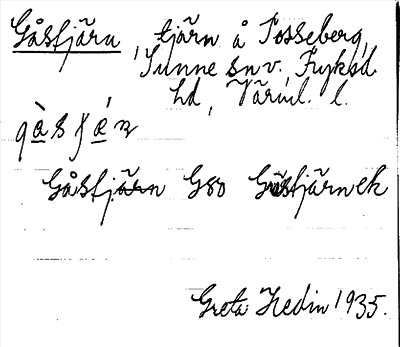 Gåstjärn, tjärn å Tosseberg,
Sunne snv., Fryksd.
hd, Värml. l.
Gåstjärn GSO Gåstjärnek
Greta Hedin 1935.